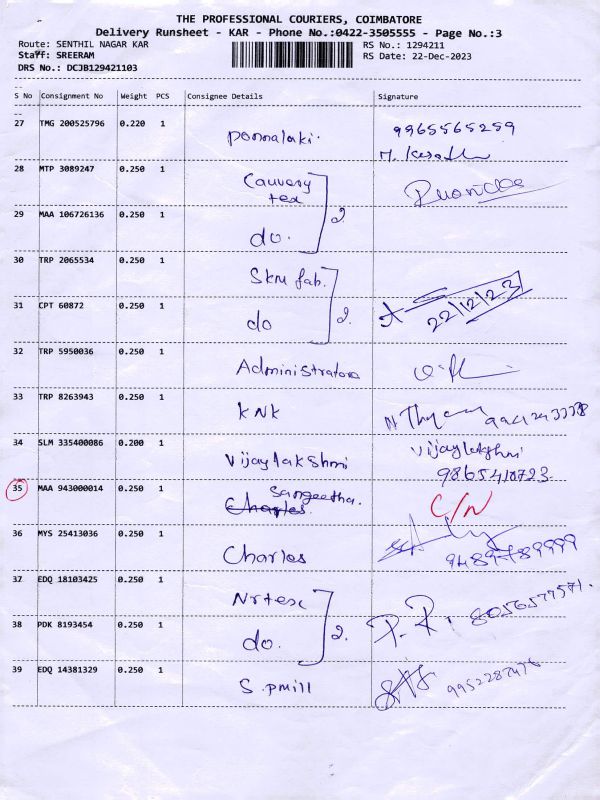 THE PROFESSIONAL COURIERS, COIMBATORE
Delivery Runsheet - KAR - Phone No.:0422-3505555 - Page No.:3
Route: SENTHIL NAGAR KAR RS No.: 1294211
Staff: SREERAM RS Date: 22-Dec-2023
DRS No.: DCJB129421103
S No Consignment No Weight PCS Consignee Details Signature
27 TMG 200525796 0.220 1 Ponnalaki. 9965565259
28 MTP 3089247 0.250 1 Cauvery
tex 2.
29 MAA 106726136 0.250 1 do.
30 TRP 2065534 0.250 1 Skm fab.
31 CPT 60872 0.250 1 do 2. 22/12/23
32 TRP 5950036 0.250 1 Administrators
33 TRP 8263943 0.250 1 KNK
34 SLM 335400086 0.200 1 Vijaylakshmi Vijaylakshmi
9865410723
35 MAA 943000014 0.250 1 Sangeetha. C/N
Charles.
36 MYS 25413036 0.250 1 Charles 9489789999
37 EDQ 18103425 0.250 1 Nrtex 8056577571.
38 PDK 8193454 0.250 1 do. 2. P.R.
39 EDQ 14381329 0.250 1 S.pmill